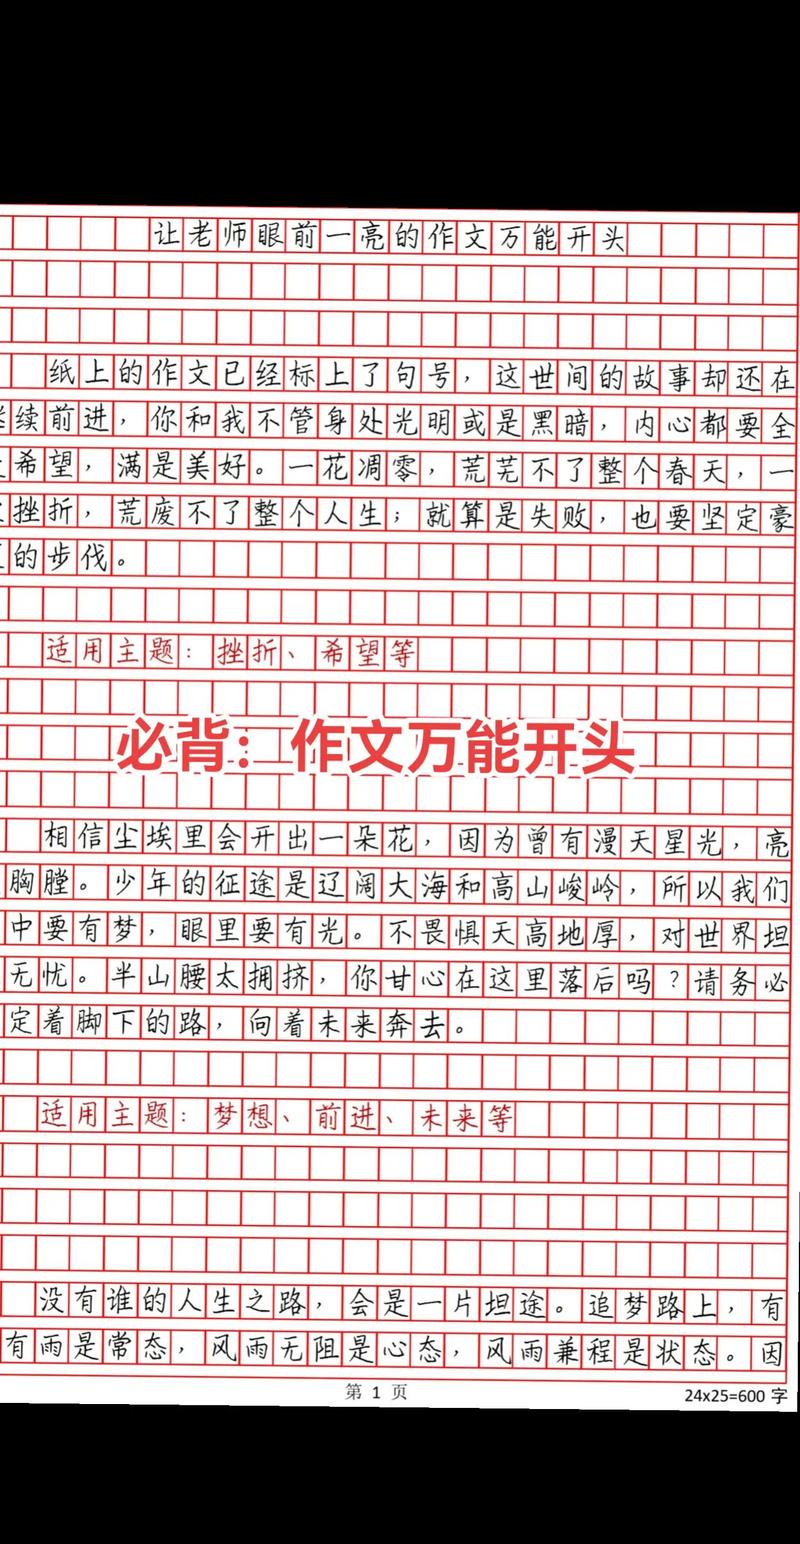 让老师眼前一亮的作文万能开头
纸上的作文已经标上了句号，这世间的故事却还在
续前进，你和我不管身处光明或是黑暗，内心都要全
希望，满是美好。一花凋零，荒芜不了整个春天，一
挫折，荒废不了整个人生；就算是失败，也要坚定豪
的步伐。
适用主题：挫折、希望等
必背：作文万能开头
相信尘埃里会开出一朵花，因为曾有漫天星光，亮
胸膛。少年的征途是辽阔大海和高山峻岭，所以我们
中要有梦，眼里要有光。不畏惧天高地厚，对世界坦
无忧。半山腰太拥挤，你甘心在这里落后吗？请务必
定着脚下的路，向着未来奔去。
适用主题：梦想、前进、未来等
没有谁的人生之路，会是一片坦途。追梦路上，有
有雨是常态，风雨无阻是心态，风雨兼程是状态。因
第 1 页
24x25=600 字